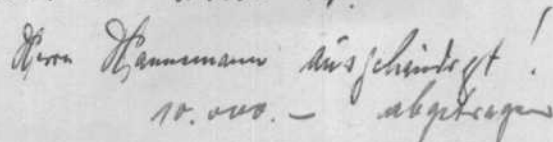 Herrn Hannemann ausgehändigt!
10.000.– abgetragen